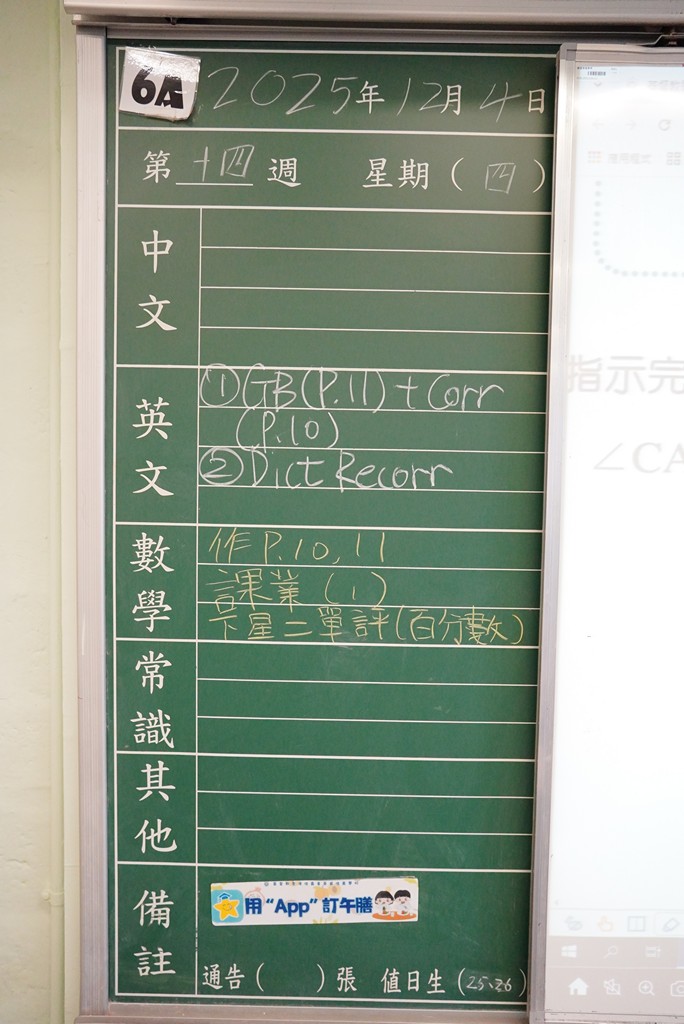 6A 2025年12月4日
第十四週 星期(四)
中文
英文
①GB(P.11)+Corr
(P.10)
②Dict Recorr
數學
作P.10,11
課業(1)
下星二單評(百分數)
常識
其他
備註
用“App”訂午膳
通告( )張 值日生(25、26)
指示完
∠CA